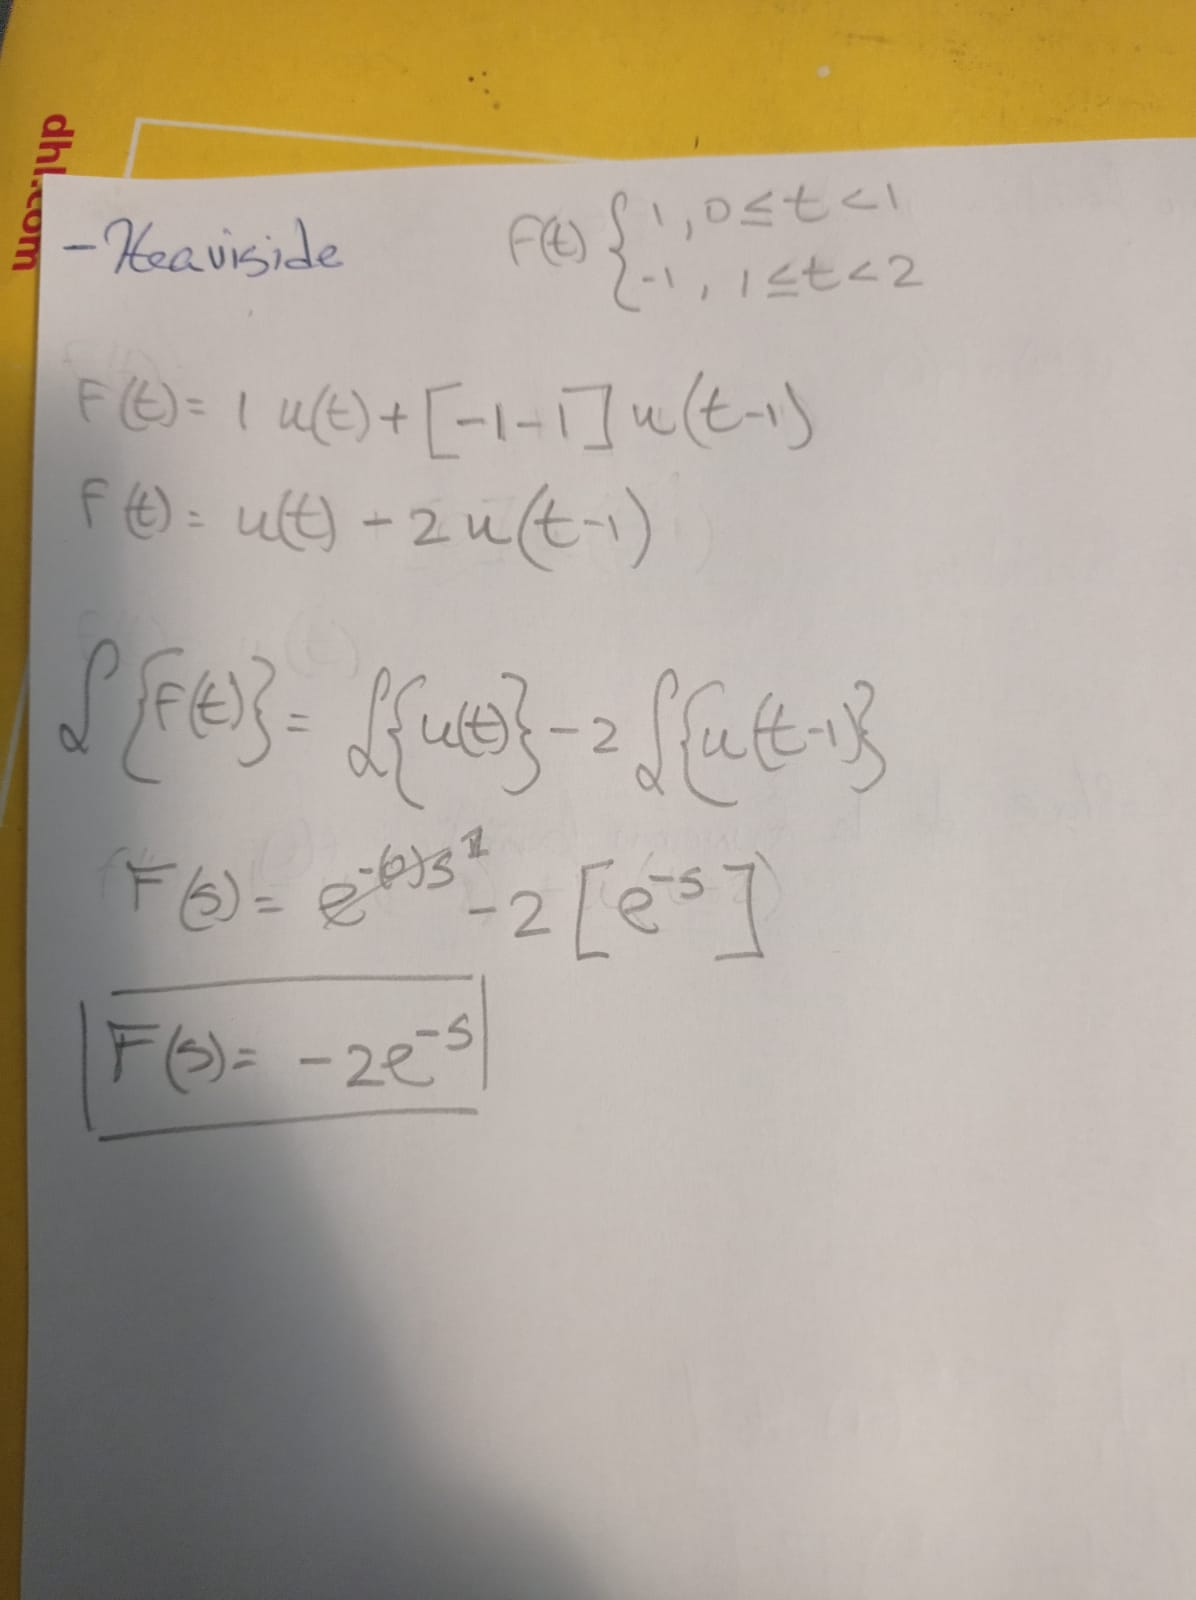 dhl.com
- Heaviside
F(t) { 1, 0 ≤ t < 1
-1, 1 ≤ t < 2
F(t) = 1 u(t) + [-1-1] u(t-1)
F(t) = u(t) - 2u(t-1)
ℒ{F(t)} = ℒ{u(t)} - 2ℒ{u(t-1)}
F(s) = e^-(0)s 1 - 2[e^-s]
F(s) = -2e^-s